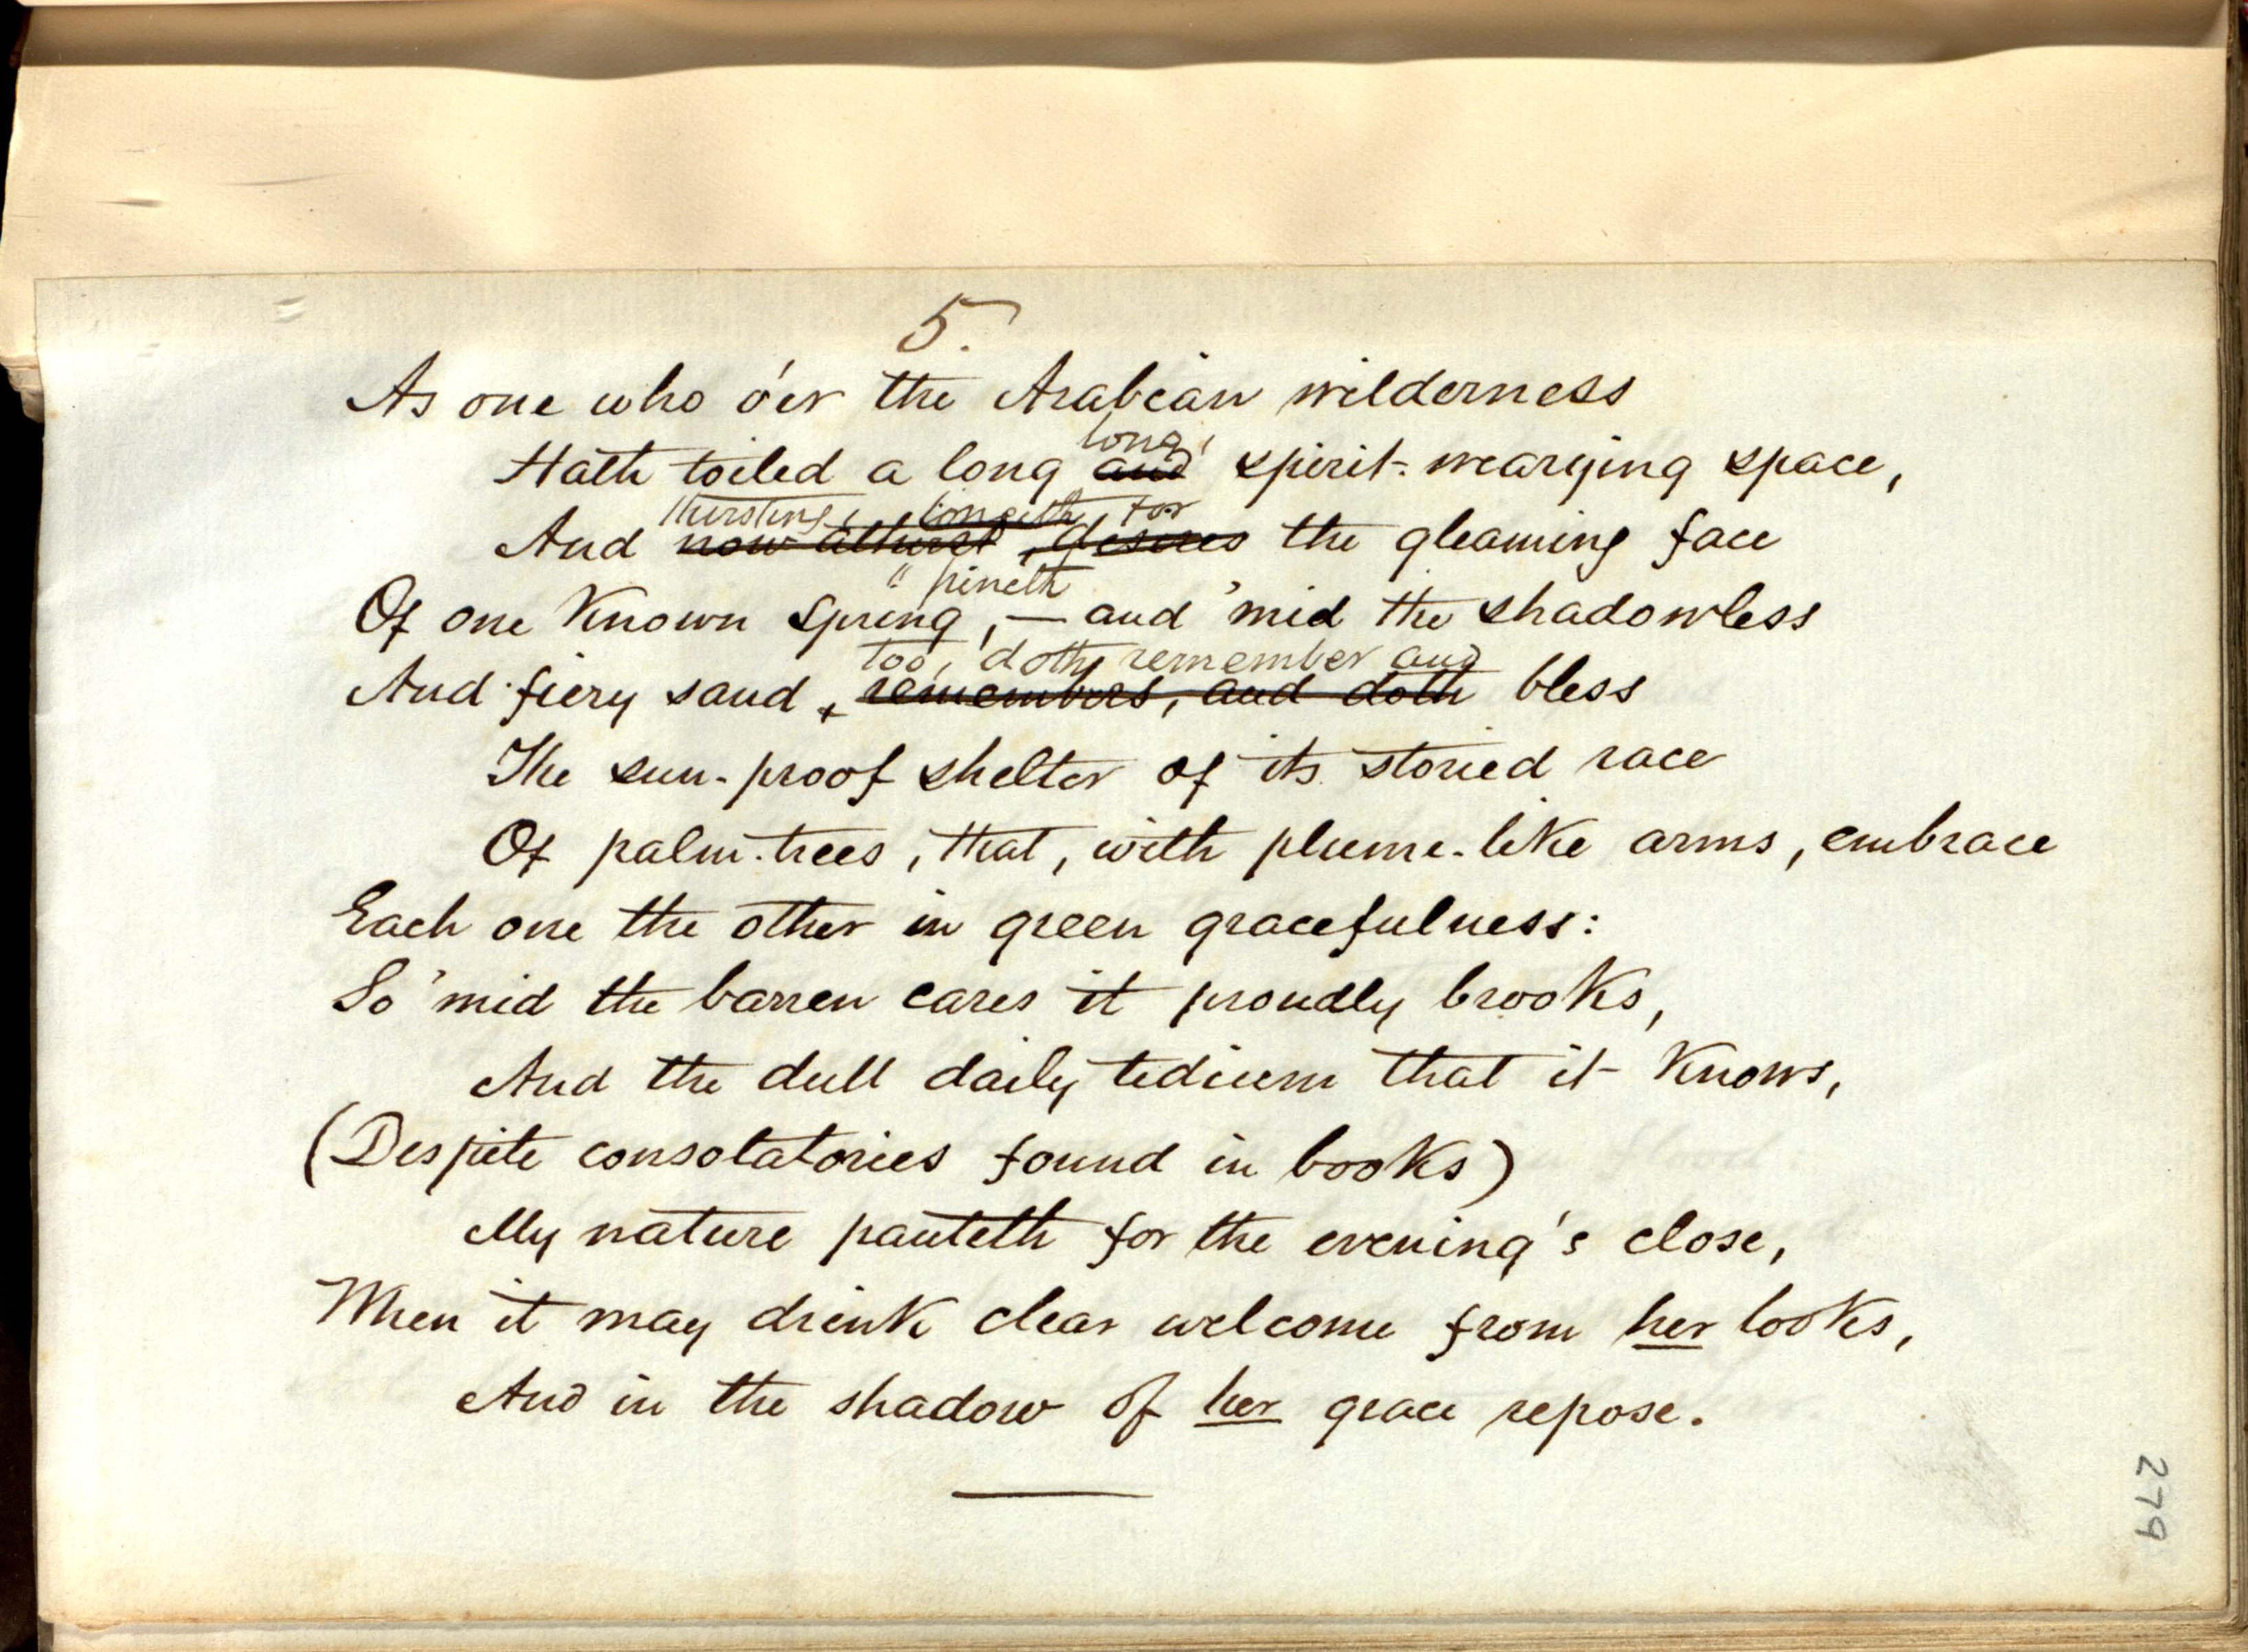 5.
As one who o'er the Arabian wilderness
long,
Hath toiled a long and spirit-wearying space,
thirsting, longeth for
And now athirst, desires the gleaming face
" pineth
Of one Known Spring, — and 'mid the shadowless
too, doth remember and
And fiery sand, remembers, and doth bless
The sun-proof shelter of its storied race
Of palm-trees, that, with plume-like arms, embrace
Each one the other in green gracefulness:
So 'mid the barren cares it proudly brooks,
And the dull daily tedium that it Knows,
(Despite consolatories found in books)
My nature panteth for the evening's close,
When it may drink clear welcome from her looks,
And in the shadow of her grace repose.
279